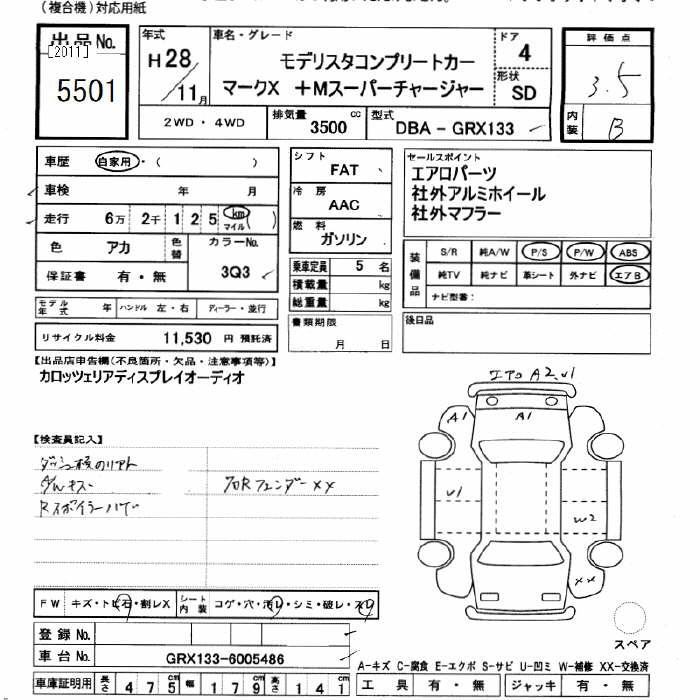 (複合機)対応用紙
出品No.
[2011]
5501
年式
H28
/11月
車名・グレード
モデリスタコンプリートカー
マークX +Mスーパーチャージャー
ドア
4
形状
SD
2WD・4WD
排気量 3500 cc
型式 DBA - GRX133
評価点
3.5
内装 B
車歴 自家用・( )
車検 年 月
走行 6万 2千 1 2 5 km マイル ( )
色 アカ 色替 カラーNo.
保証書 有・無 3Q3
シフト
FAT
冷房
AAC
燃料
ガソリン
乗車定員 5 名
積載量 kg
総重量 kg
セールスポイント
エアロパーツ
社外アルミホイール
社外マフラー
装備品
S/R 純A/W P/S P/W ABS
純TV 純ナビ 革シート 外ナビ エアB
ナビ型番:
モデル年式 年 ハンドル 左・右 ディーラー・並行
リサイクル料金 11,530 円 預託済
書類期限
月 日
後日品
【出品店申告欄(不良箇所・欠品・注意事項等)】
カロッツェリアディスプレイオーディオ
エアロ A2.U1
A1
A1
U1
W2
XX
【検査員記入】
Rスポイラーハゲ
FW キズ・トビ石・割レX シート内装 コゲ・穴・汚レ・シミ・破レ・スレ
登録No.
車台No. GRX133-6005486
スペア
A-キズ C-腐食 E-エクボ S-サビ U-凹ミ W-補修 XX-交換済
車庫証明用 長さ 475 cm 幅 179 cm 高さ 141 cm
工具 有・無 ジャッキ 有・無